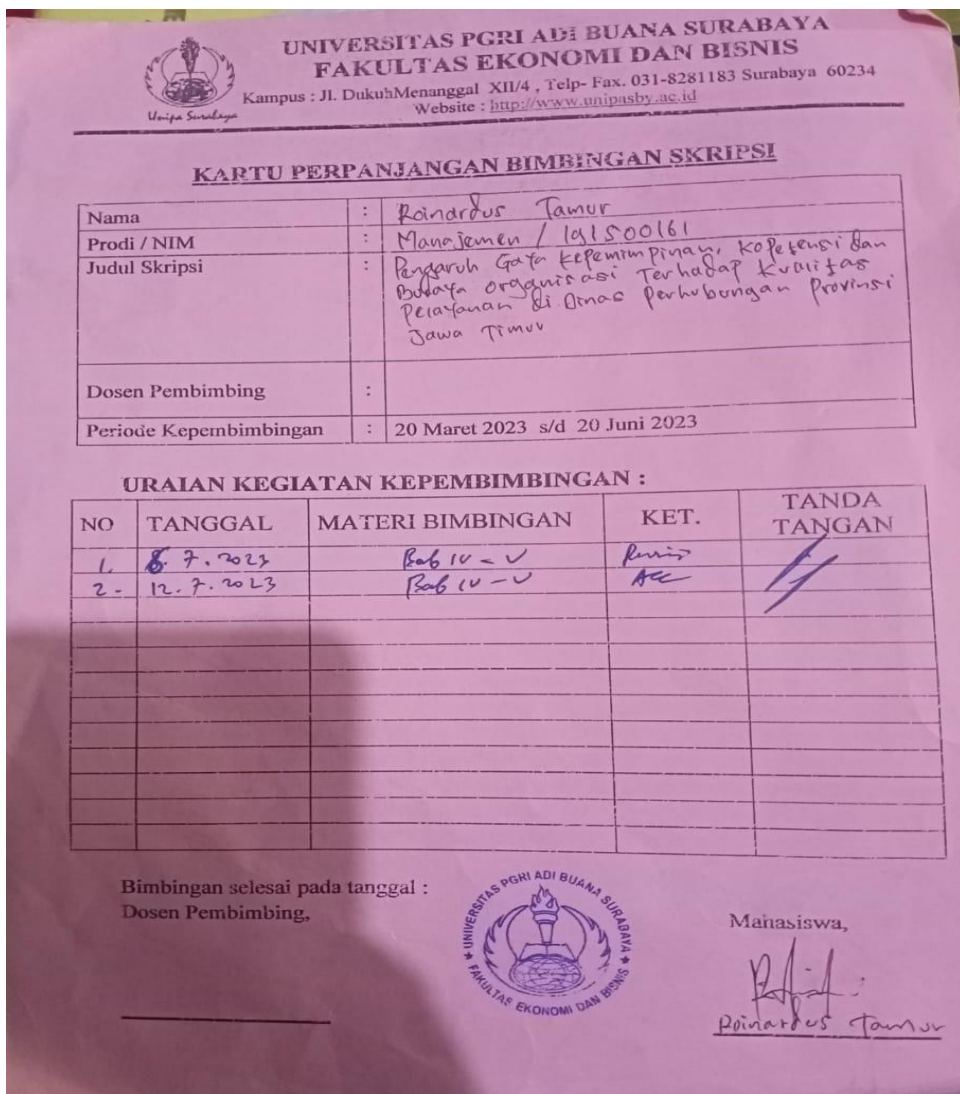 UNIVERSITAS PGRI ADI BUANA SURABAYA
FAKULTAS EKONOMI DAN BISNIS
Kampus : Jl. DukuhMenanggal XII/4 , Telp- Fax. 031-8281183 Surabaya 60234
Website : http://www.unipasby.ac.id
Unipa Surabaya
KARTU PERPANJANGAN BIMBINGAN SKRIPSI
Nama : Roinardus Tamur
Prodi / NIM : Manajemen / 191500161
Judul Skripsi : Pengaruh Gaya kepemimpinan, kopetensi dan
Budaya organisasi Terhadap kualitas
Pelayanan di Dinas Perhubungan Provinsi
Jawa Timur
Dosen Pembimbing :
Periode Kepembimbingan : 20 Maret 2023 s/d 20 Juni 2023
URAIAN KEGIATAN KEPEMBIMBINGAN :
NO TANGGAL MATERI BIMBINGAN KET. TANDA TANGAN
1. 8. 7. 2023 Bab IV - V Revisi
2. 12. 7. 2023 Bab IV - V ACC
Bimbingan selesai pada tanggal :
Dosen Pembimbing,
UNIVERSITAS PGRI ADI BUANA SURABAYA
FAKULTAS EKONOMI DAN BISNIS
Mahasiswa,
Roinardus Tamur